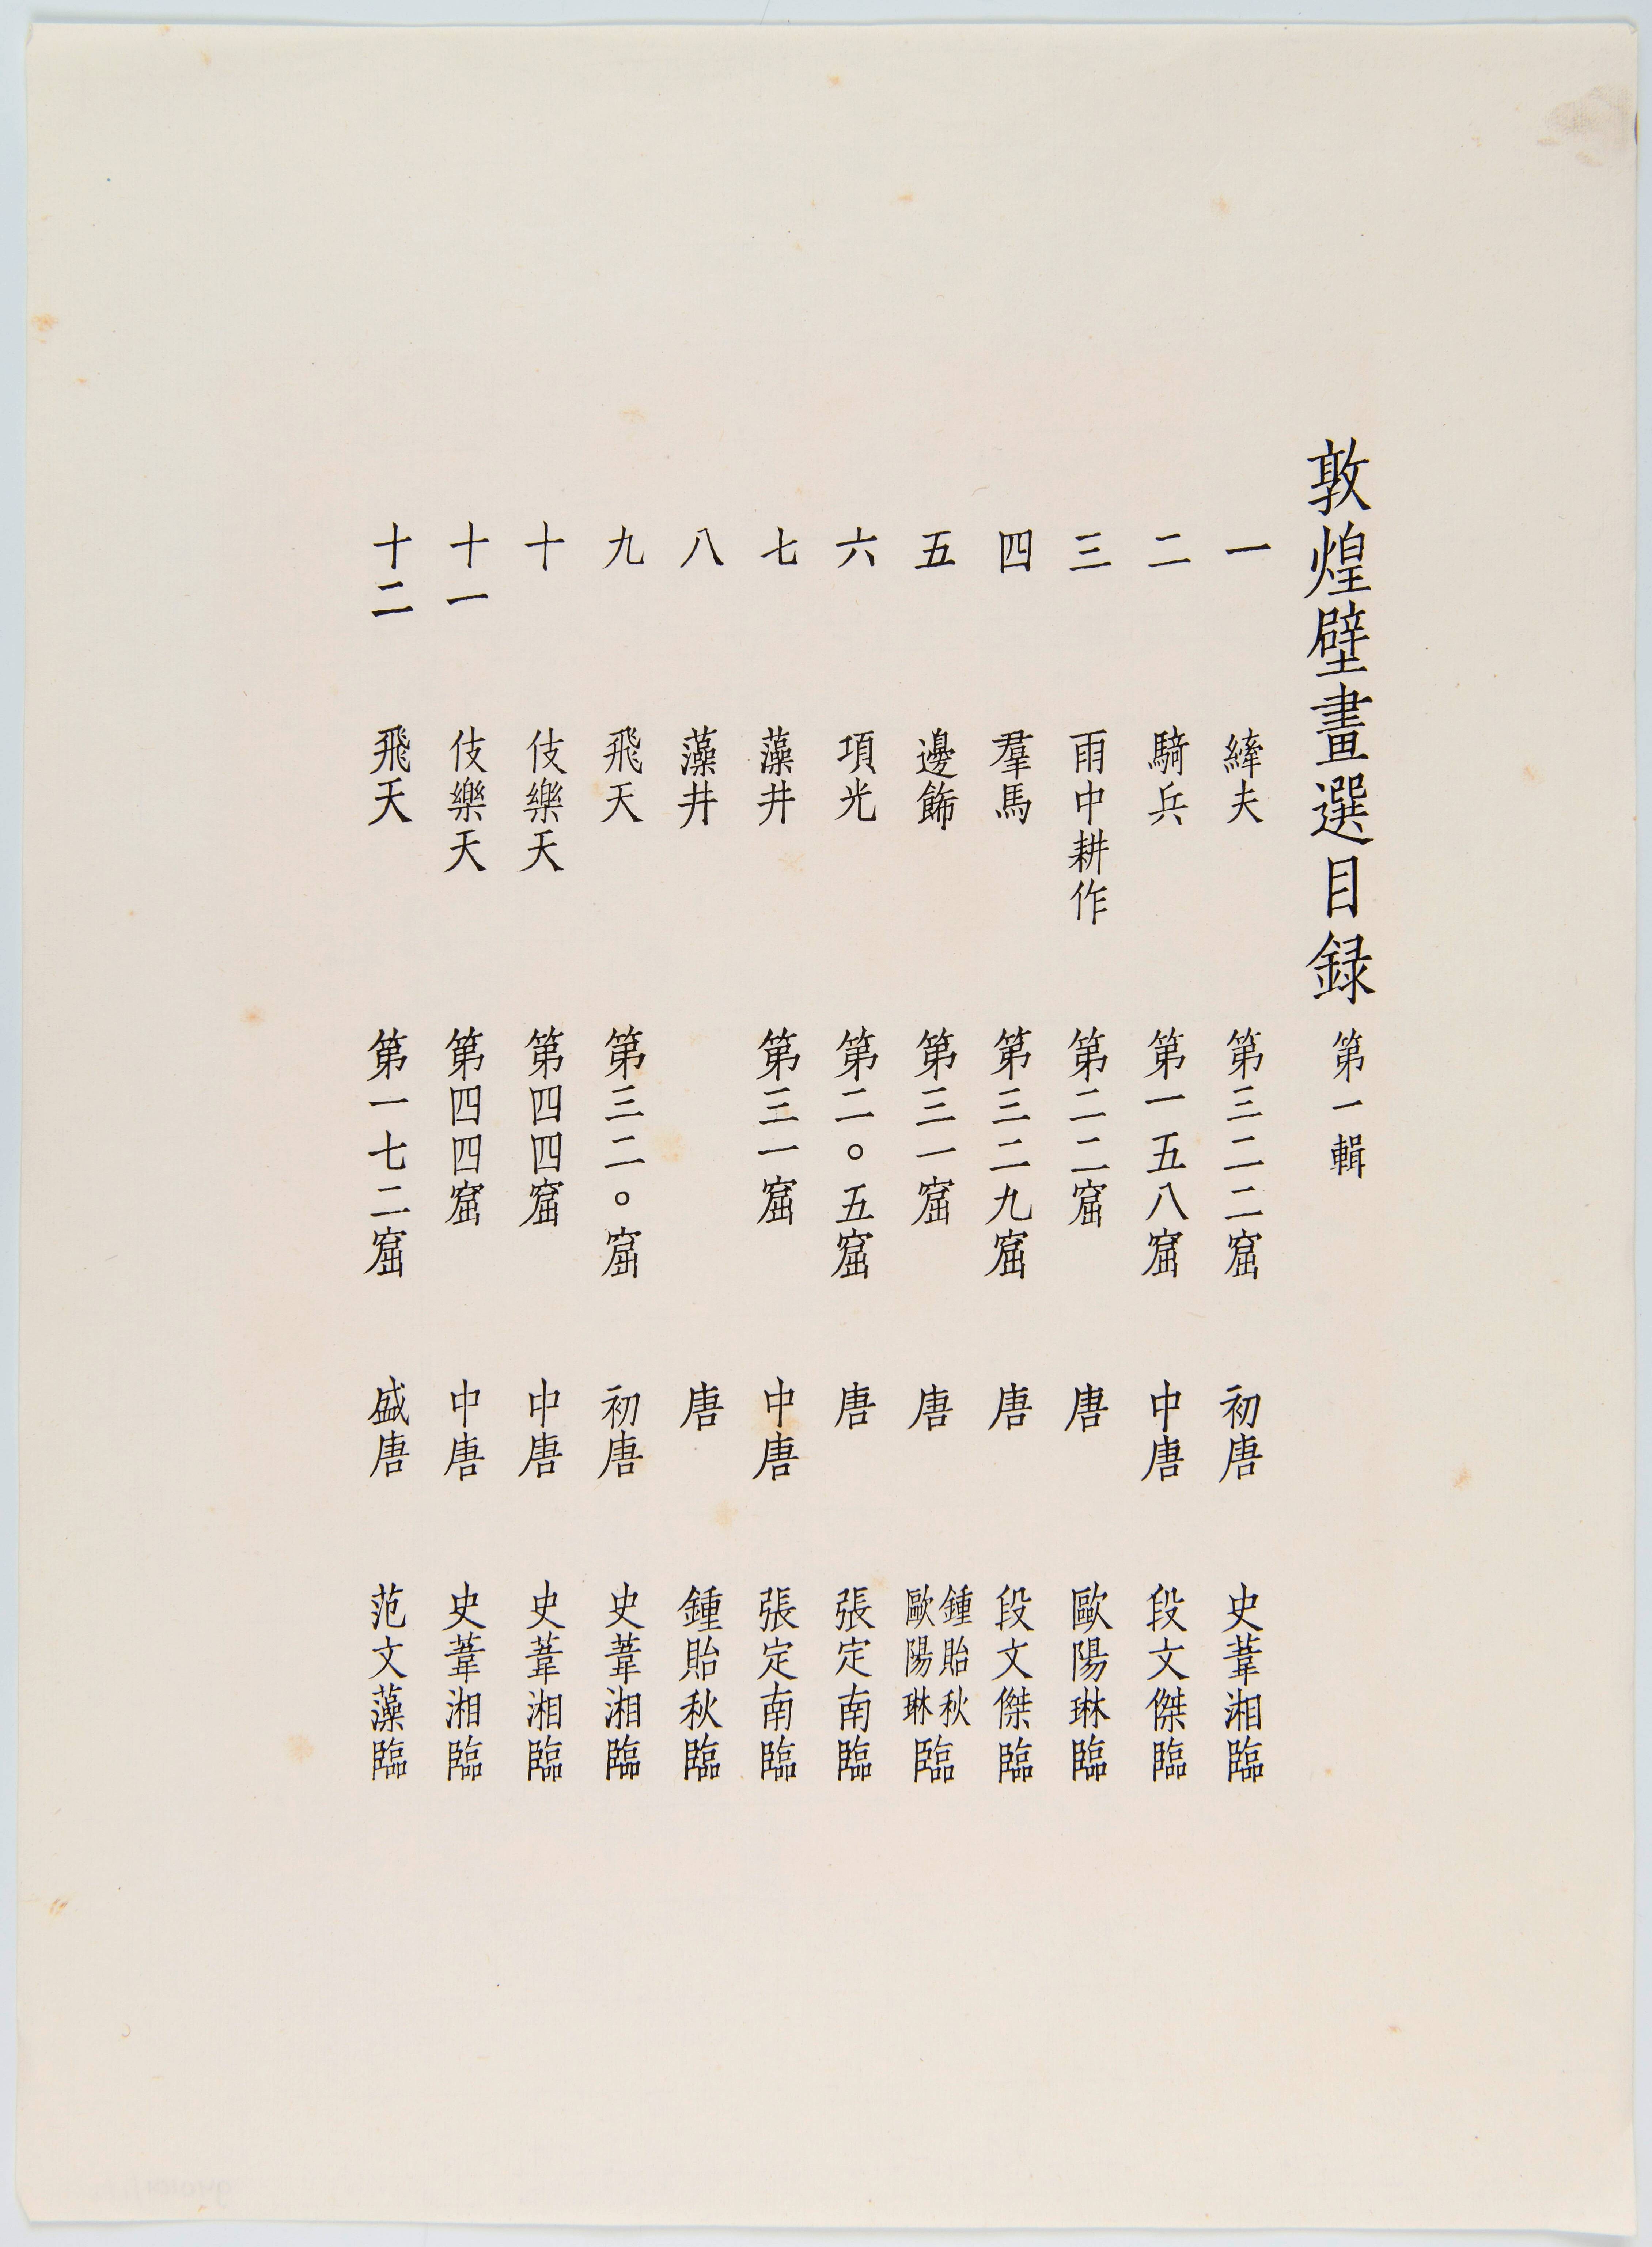 敦煌壁畫選目録 第一輯
一 縴夫 第三二二窟 初唐 史葦湘臨
二 騎兵 第一五八窟 中唐 段文傑臨
三 雨中耕作 第二二窟 唐 歐陽琳臨
四 羣馬 第三二九窟 唐 段文傑臨
五 邊飾 第三一窟 唐 鍾貽秋 歐陽琳 臨
六 項光 第二〇五窟 唐 張定南臨
七 藻井 第三一窟 中唐 張定南臨
八 藻井 唐 鍾貽秋臨
九 飛天 第三二〇窟 初唐 史葦湘臨
十 伎樂天 第四四窟 中唐 史葦湘臨
十一 伎樂天 第四四窟 中唐 史葦湘臨
十二 飛天 第一七二窟 盛唐 范文藻臨